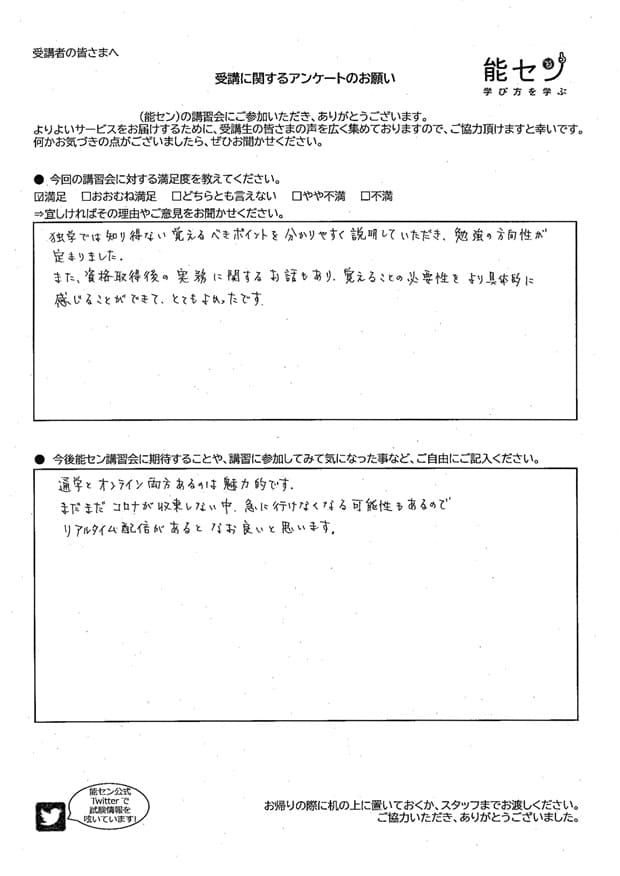 受講者の皆さまへ
能セン
学び方を学ぶ
受講に関するアンケートのお願い
(能セン)の講習会にご参加いただき、ありがとうございます。
よりよいサービスをお届けするために、受講生の皆さまの声を広く集めておりますので、ご協力頂けますと幸いです。
何かお気づきの点がございましたら、ぜひお聞かせください。
● 今回の講習会に対する満足度を教えてください。
☑満足 □おおむね満足 □どちらとも言えない □やや不満 □不満
⇒宜しければその理由やご意見をお聞かせください。
独学では知り得ない覚えるべきポイントを分かりやすく説明していただき、勉強の方向性が
定まりました。
また、資格取得後の実務に関するお話もあり、覚えることの必要性をより具体的に
感じることができて、とてもよかったです。
● 今後能セン講習会に期待することや、講習に参加してみて気になった事など、ご自由にご記入ください。
通学とオンライン両方あるのは魅力的です。
まだまだコロナが収束しない中、急に行けなくなる可能性もあるので
リアルタイム配信があるとなお良いと思います。
能セン公式
Twitterで
試験情報を
呟いています!
お帰りの際に机の上に置いておくか、スタッフまでお渡しください。
ご協力いただき、ありがとうございました。